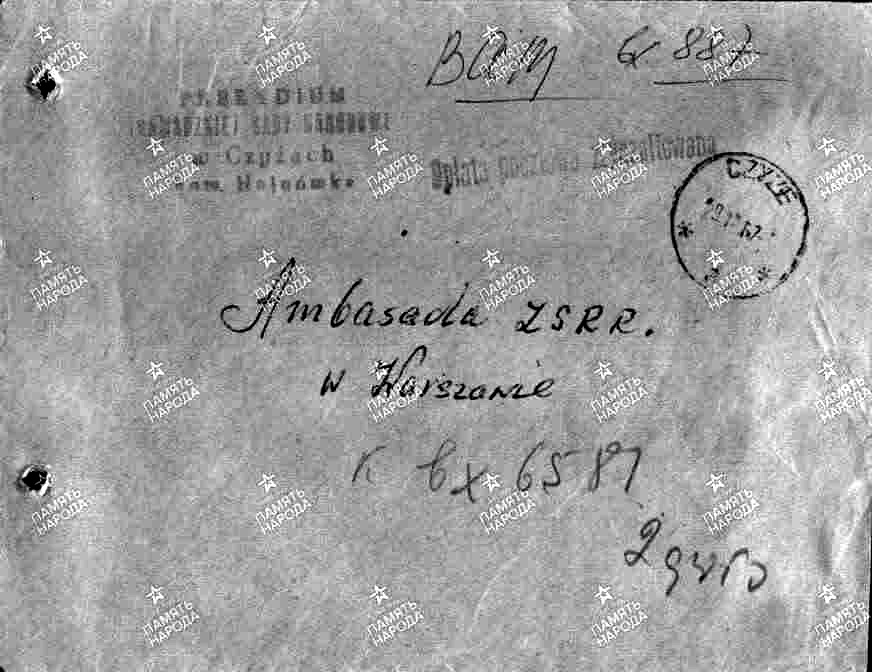 PREZYDIUM
GROMADZKIEJ RADY NARODOWEJ
w Czyżach
pow. Hajnówka
Opłata pocztowa zryczałtowana
CZYŻE
Ambasada ZSRR.
w Warszawie
к вх 6581
ПАМЯТЬ
НАРОДА